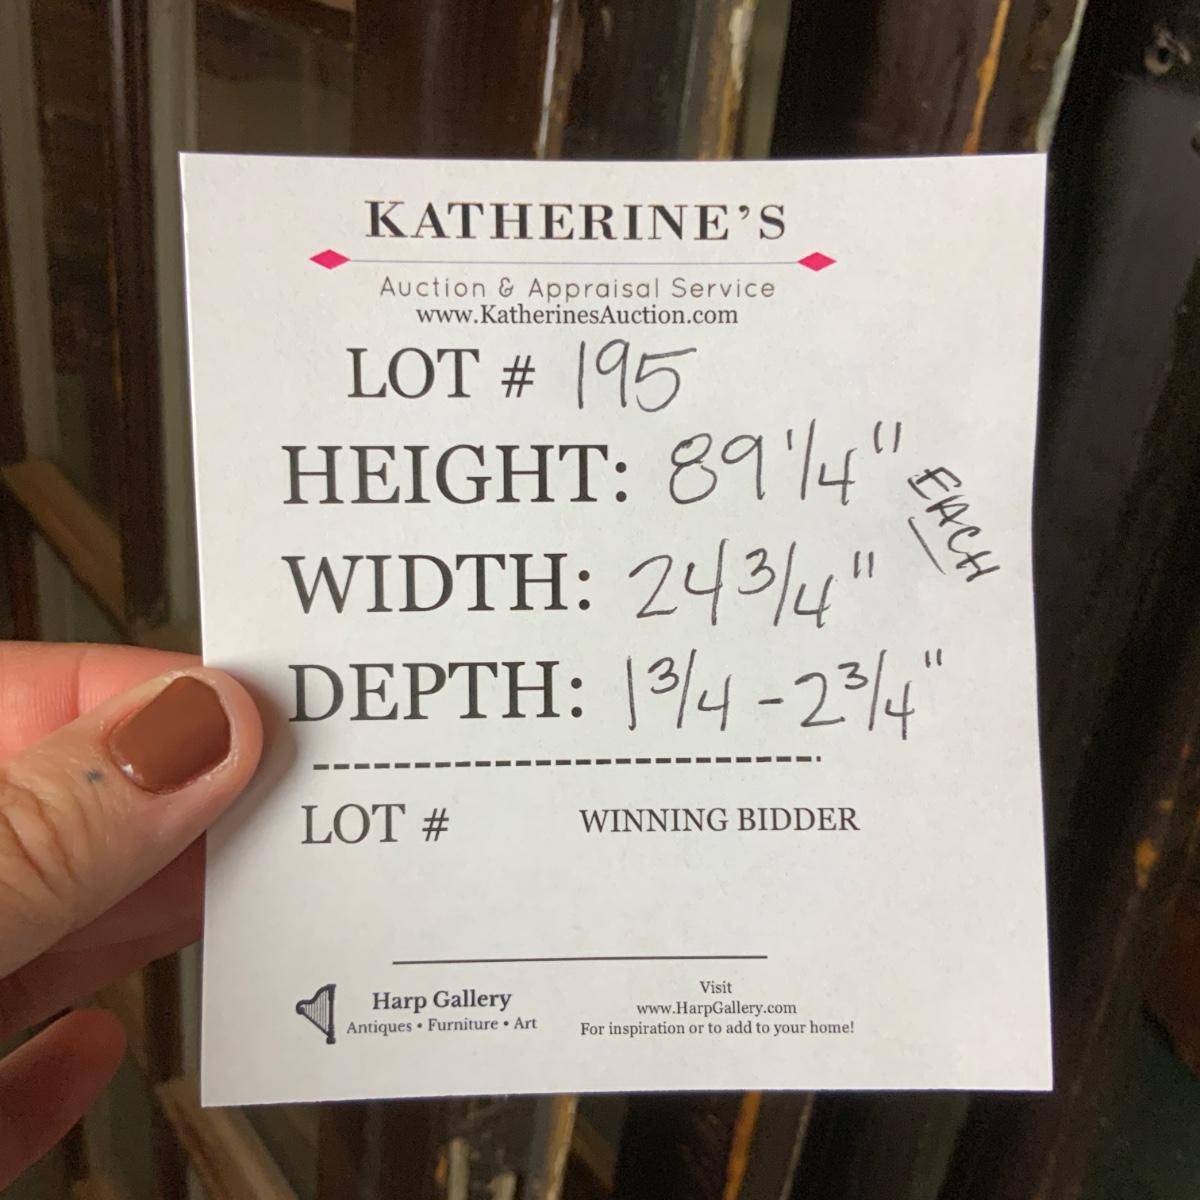 KATHERINE'S
Auction & Appraisal Service
www.KatherinesAuction.com
LOT # 195
HEIGHT: 89 1/4"
EACH
WIDTH: 24 3/4"
DEPTH: 1 3/4 - 2 3/4"
LOT # WINNING BIDDER
Harp Gallery
Antiques • Furniture • Art
Visit
www.HarpGallery.com
For inspiration or to add to your home!